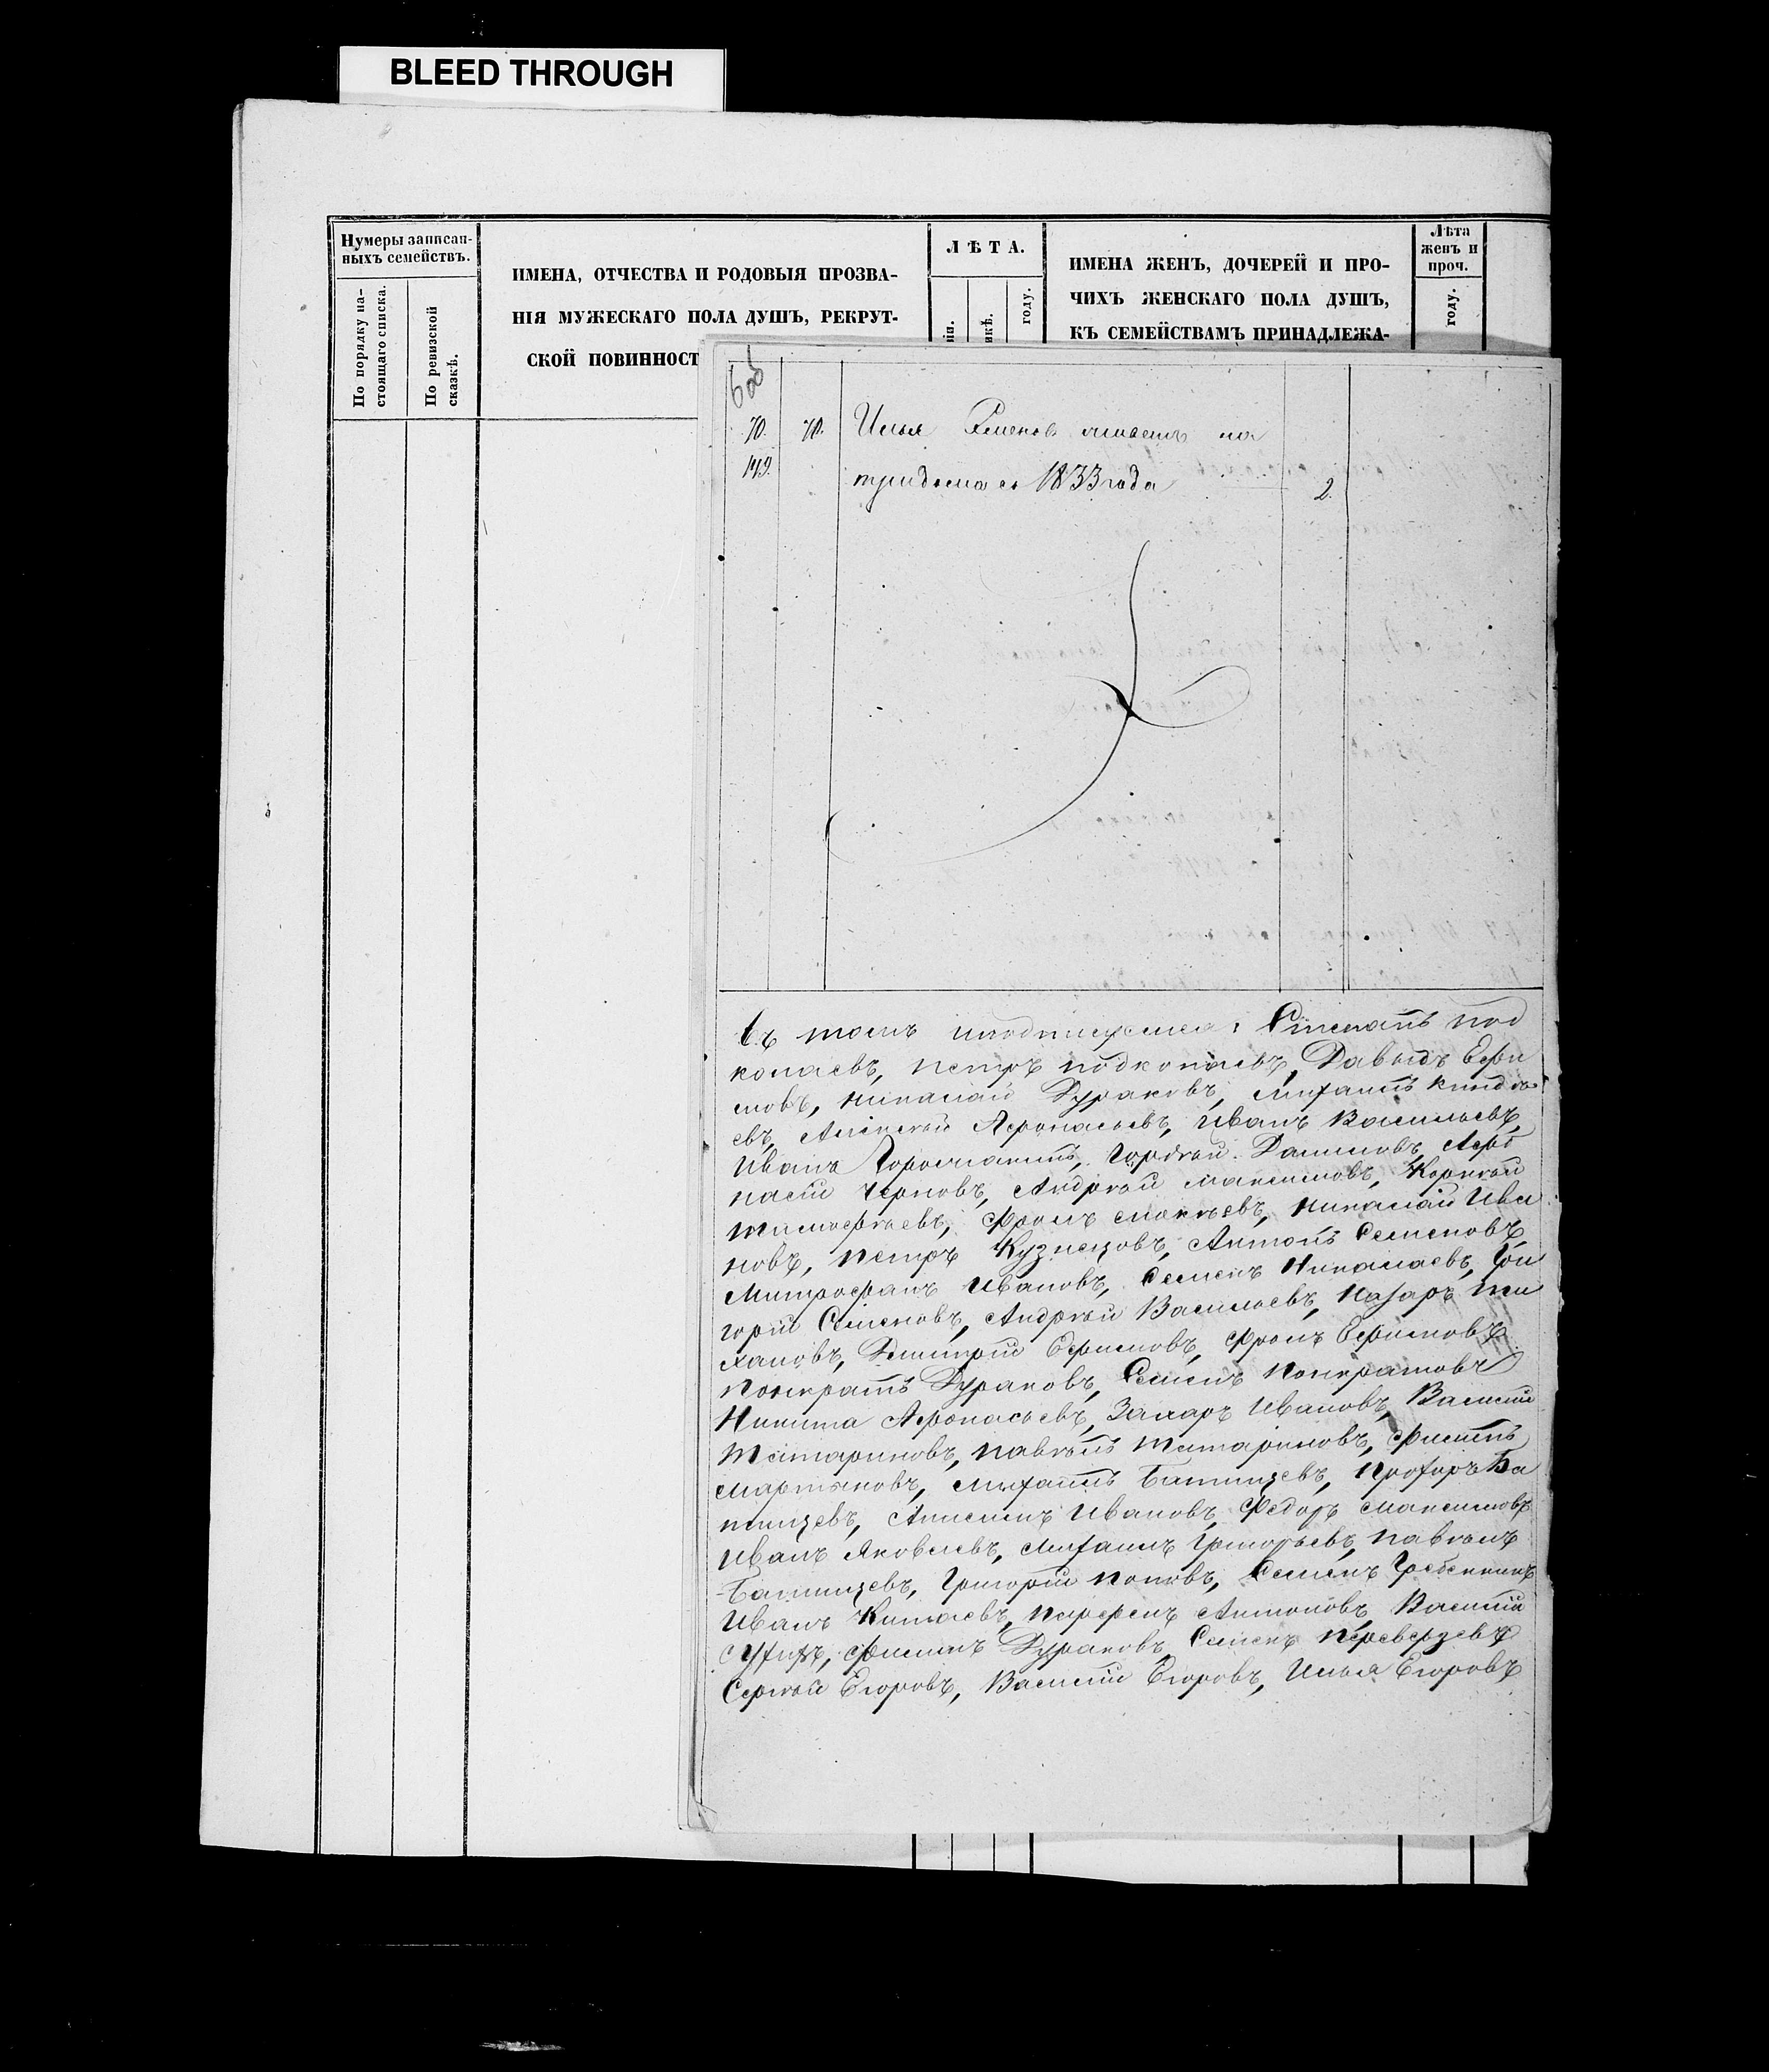 BLEED THROUGH
Нумеры записан-
ныхъ семействъ.
По порядку на-
стоящаго списка.
По ревизской
сказкѣ.
ИМЕНА, ОТЧЕСТВА И РОДОВЫЯ ПРОЗВА-
НІЯ МУЖЕСКАГО ПОЛА ДУШЪ, РЕКРУТ-
СКОЙ ПОВИННОСТ
ЛѢТА.
году.
ИМЕНА ЖЕНЪ, ДОЧЕРЕЙ И ПРО-
ЧИХЪ ЖЕНСКАГО ПОЛА ДУШЪ,
КЪ СЕМЕЙСТВАМЪ ПРИНАДЛЕЖА-
Лѣта
женъ и
проч.
году.
70. 70. Илья Семеновъ
1833 года 2.
въ томъ и подписуемся: Степанъ Под
копаевъ, Петръ Подкопаевъ, Давыдъ Ефи
мовъ, Николай Дураковъ, Михаилъ
евъ, Алексѣй Афонасьевъ, Иванъ Васильевъ,
Иванъ Гордѣй Даниловъ, Афо
насій Черновъ, Андрѣй Максимовъ, Корнѣй
Тимофѣевъ, Фролъ Мокѣевъ, Николай Ива
новъ, Петръ Кузнецовъ, Антонъ Семеновъ,
Митрофанъ Ивановъ, Семенъ Николаевъ, Гри
горій Семеновъ, Андрѣй Васильевъ, Назаръ Ти
хановъ, Дмитрій Ефимовъ, Фролъ Ефимовъ
Понкратъ Дураковъ, Семенъ Понкратовъ
Никита Афонасьевъ, Захаръ Ивановъ, Василій
Татариновъ, Павѣлъ Татариновъ, Филипъ
Мартыновъ, Михаилъ Батищевъ, Прохоръ Ба
тищевъ, Анисимъ Ивановъ, Федоръ Максимовъ
Иванъ Яковлевъ, Михаилъ Григорьевъ, Павѣлъ
Батищевъ, Григорій Поповъ, Семенъ Гребенникъ
Иванъ Китаевъ, Парфенъ Антоновъ, Василій
Филипъ Дураковъ, Семенъ Переверзевъ
Сергѣй Егоровъ, Василій Егоровъ, Илья Егоровъ